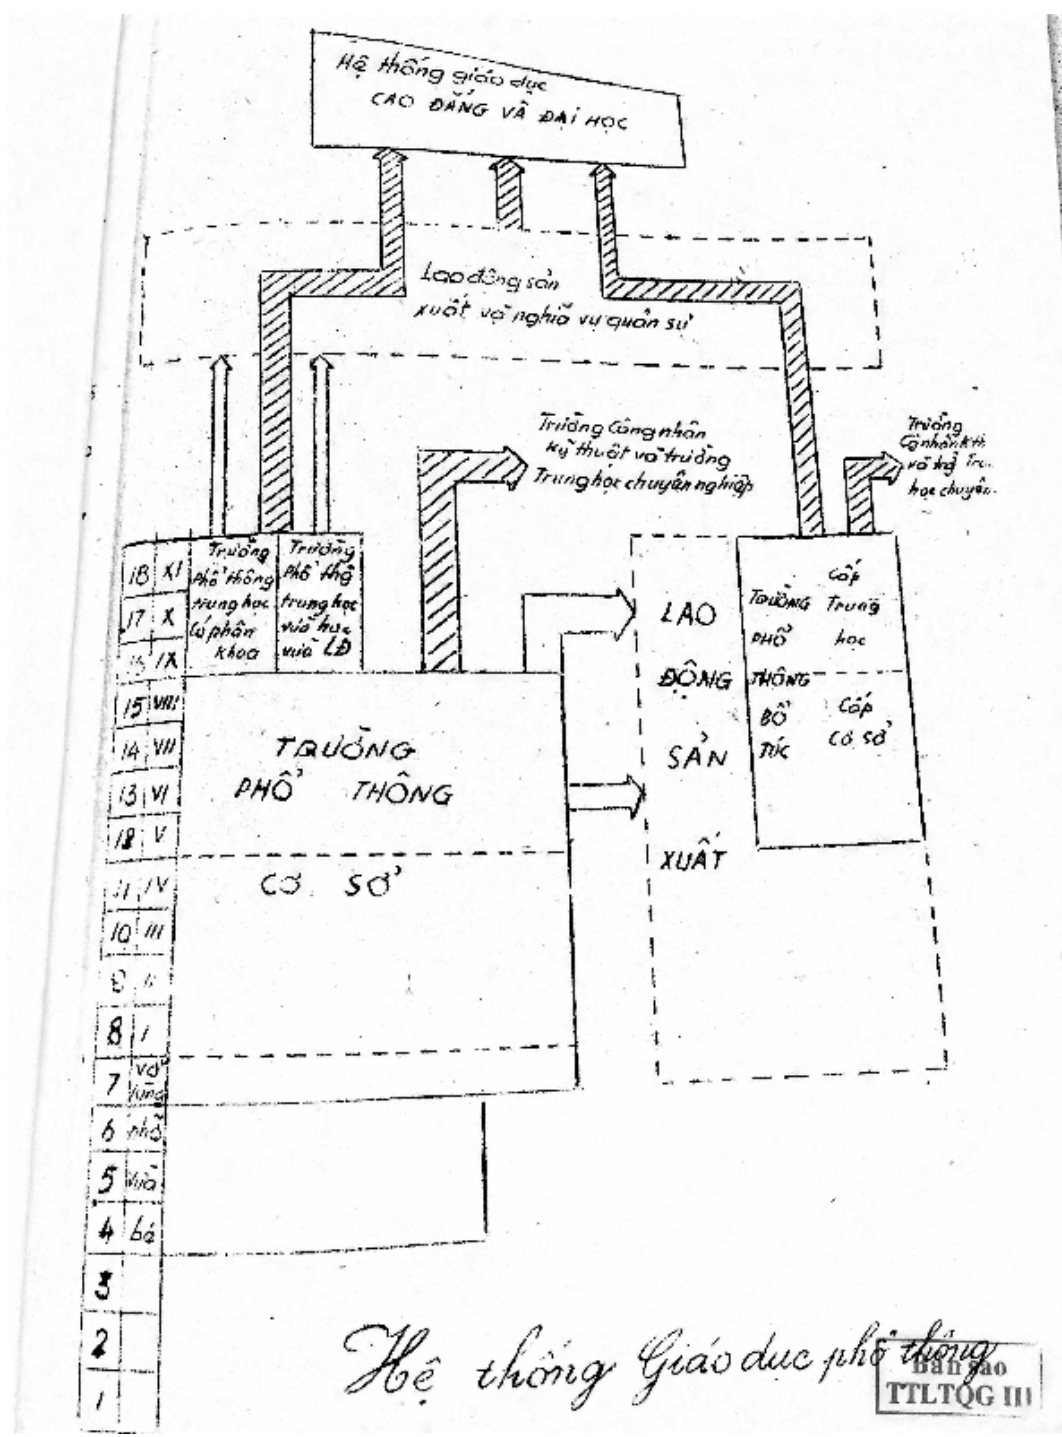 Hệ thống giáo dục
CAO ĐẲNG VÀ ĐẠI HỌC
Lao động sản
xuất và nghĩa vụ quân sự
Trường Công nhân
kỹ thuật và trường
Trung học chuyên nghiệp
Trường
và
học chuyên
18 XI
17 X
IX
15 VIII
14 VII
13 VI
12 V
11 IV
10 III
9 II
8 I
7 vỡ
lòng
6 nhỡ
5 vừa
4 bé
3
2
1
Trường
phổ thông
trung học
có phân
khoa
Trường
phổ thg
trung học
vừa học
vừa LĐ
TRƯỜNG
PHỔ THÔNG
CƠ SỞ
LAO
ĐỘNG
SẢN
XUẤT
TRƯỜNG
PHỔ
THÔNG
BỔ
TÚC
Cấp
Trung
học
Cấp
Cơ sở
Hệ thống Giáo dục phổ thông
Bản sao
TTLTQG III